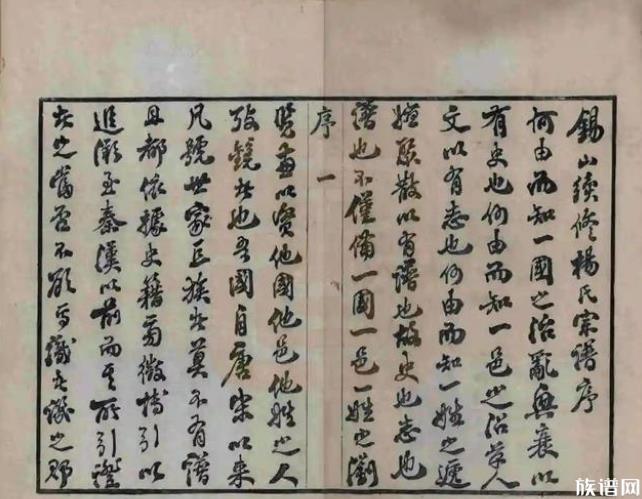 錫山續修楊氏宗譜序
何由而知一國之治亂興衰以
有史也何由而知一邑之沿革人
文以有志也何由而知一姓之遞
嬗聚散以有譜也故史也志也
譜也不僅備一國一邑一姓之瀏
序 一
覽兼以資他國他邑他姓之人
攷鏡者也吾國自唐宋以來
凡號世家巨族者莫不有譜
且都依據史籍旁徵博引以
追溯至秦漢以前而其所引證
者之當否不顧焉識者譏之
族谱网